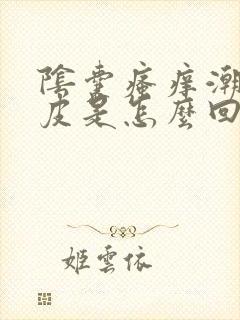 陰囊瘙癢潮
皮是怎麼回
姬雲依